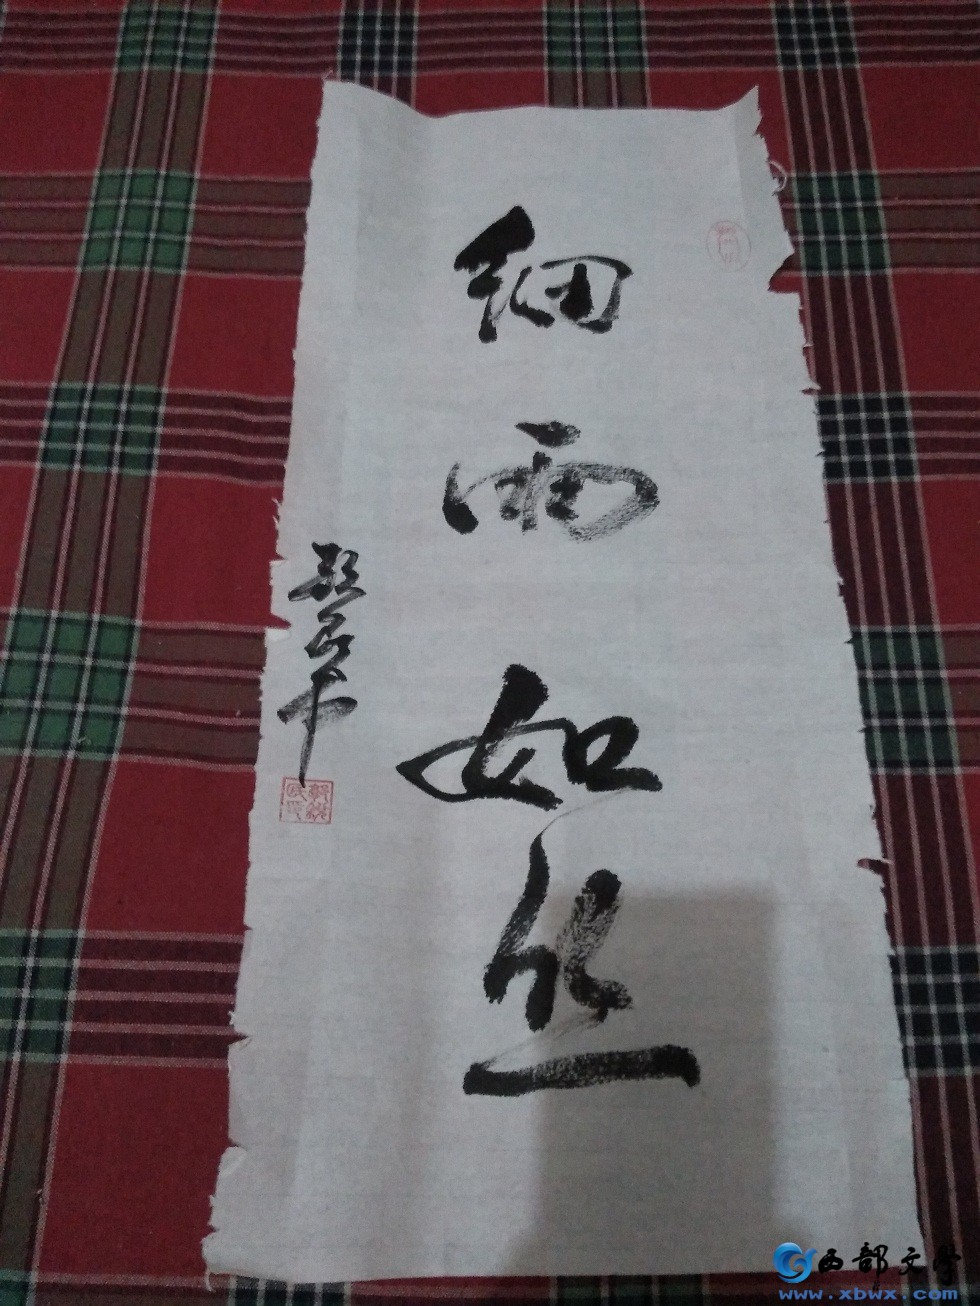 细雨如丝
西部文学
www.xbwx.com